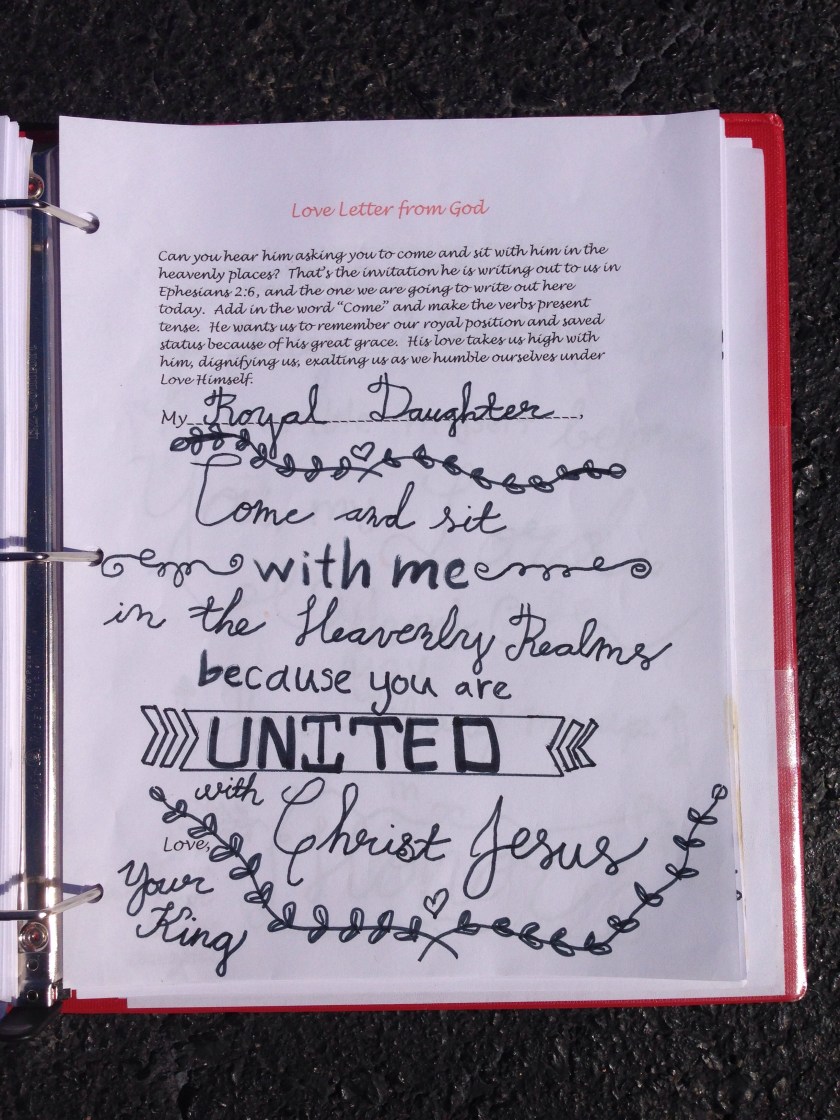 Love Letter from God
Can you hear him asking you to come and sit with him in the
heavenly places? That's the invitation he is writing out to us in
Ephesians 2:6, and the one we are going to write out here
today. Add in the word “Come” and make the verbs present
tense. He wants us to remember our royal position and saved
status because of his great grace. His love takes us high with
him, dignifying us, exalting us as we humble ourselves under
Love Himself.
My Royal Daughter,
Come and sit
with me
in the Heavenly Realms
because you are
UNITED
with
Christ Jesus
Love,
Your
King